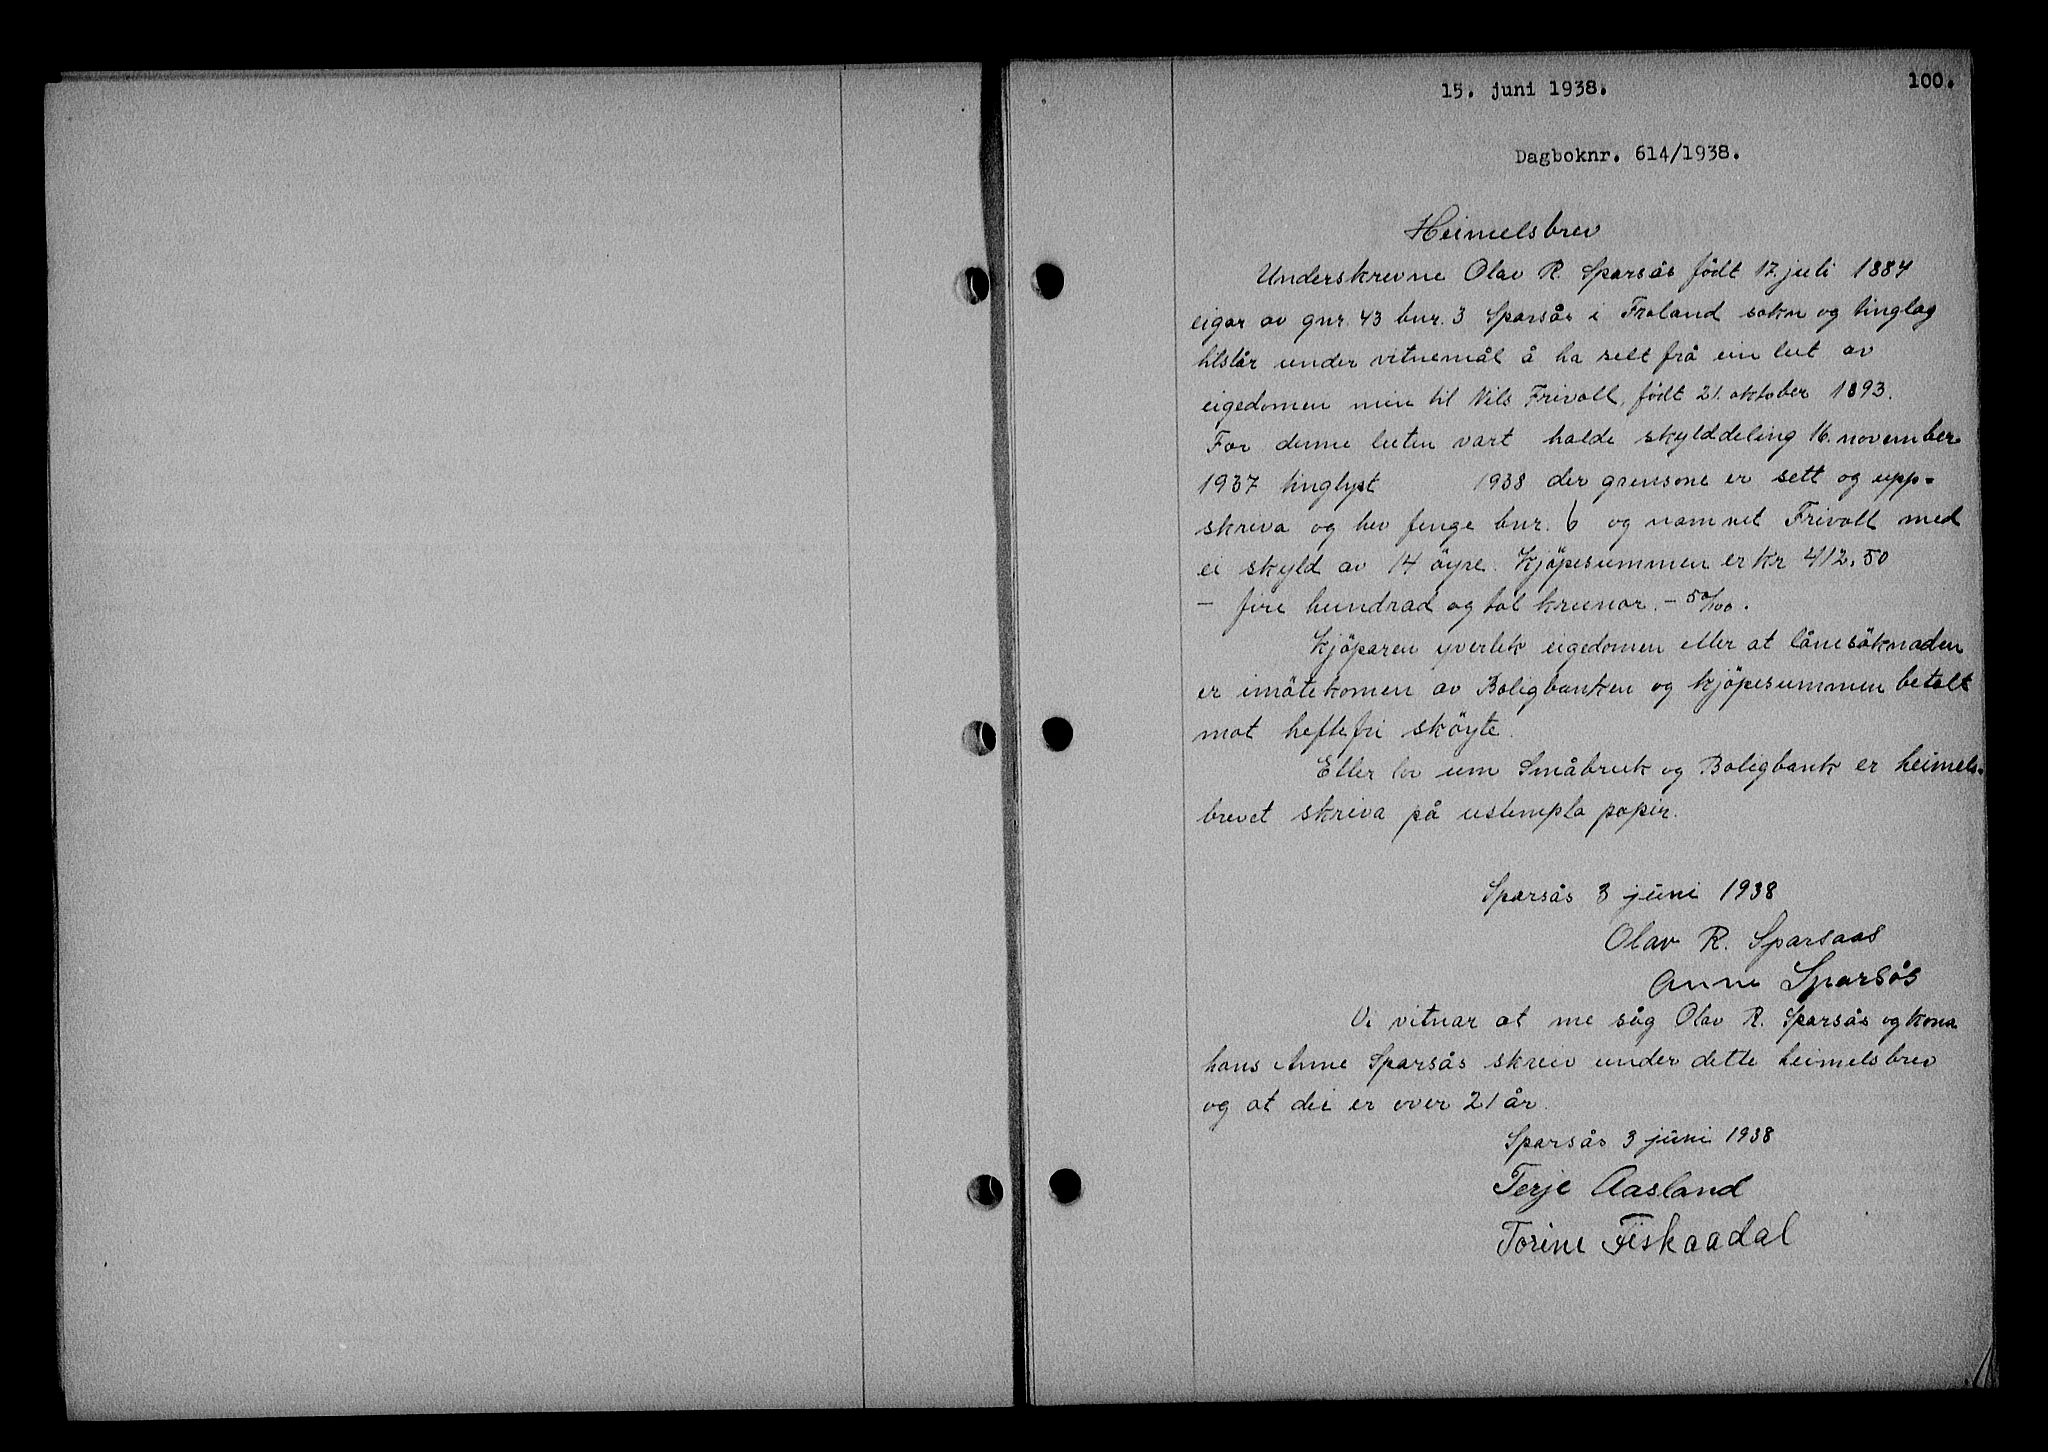 100.
15. juni 1938.
Dagboknr. 614/1938.
Heimelsbrev
Underskrevne Olav R. Sparsås födt 17 juli 1884
eigar av gnr. 43 bnr. 3 Sparsås i Froland sokn og tinglag
tilstår under vitnemål å ha selt frå ein lut av
eigedomen min til Nils Frivoll, födt 21. oktober 1893.
For denne luten vart halde skylddeling 16. november
1937 tinglyst 1938 der grensone er sett og upp-
skriva og hev fenge bnr. 6 og namnet Frivoll med
ei skyld av 14 öyre. Kjöpesummen er kr 412,50
- fire hundrad og tol krunor. - 50/100.
Kjöparen yvertek eigedomen etter at lånesöknaden
er imötekomen av Boligbanken og kjöpesummen betalt
mot heftefri sköyte.
Etter lov um Småbruk og Boligbank er heimels-
brevet skriva på ustempla papir.
Sparsås 3 juni 1938
Olav R. Sparsaas
Anne Sparsås
Vi vitnar at me såg Olav R. Sparsås og kona
hans Anne Sparsås skreiv under dette heimelsbrev
og at dei er over 21 år.
Sparsås 3 juni 1938
Terje Aasland
Torine Fiskaadal